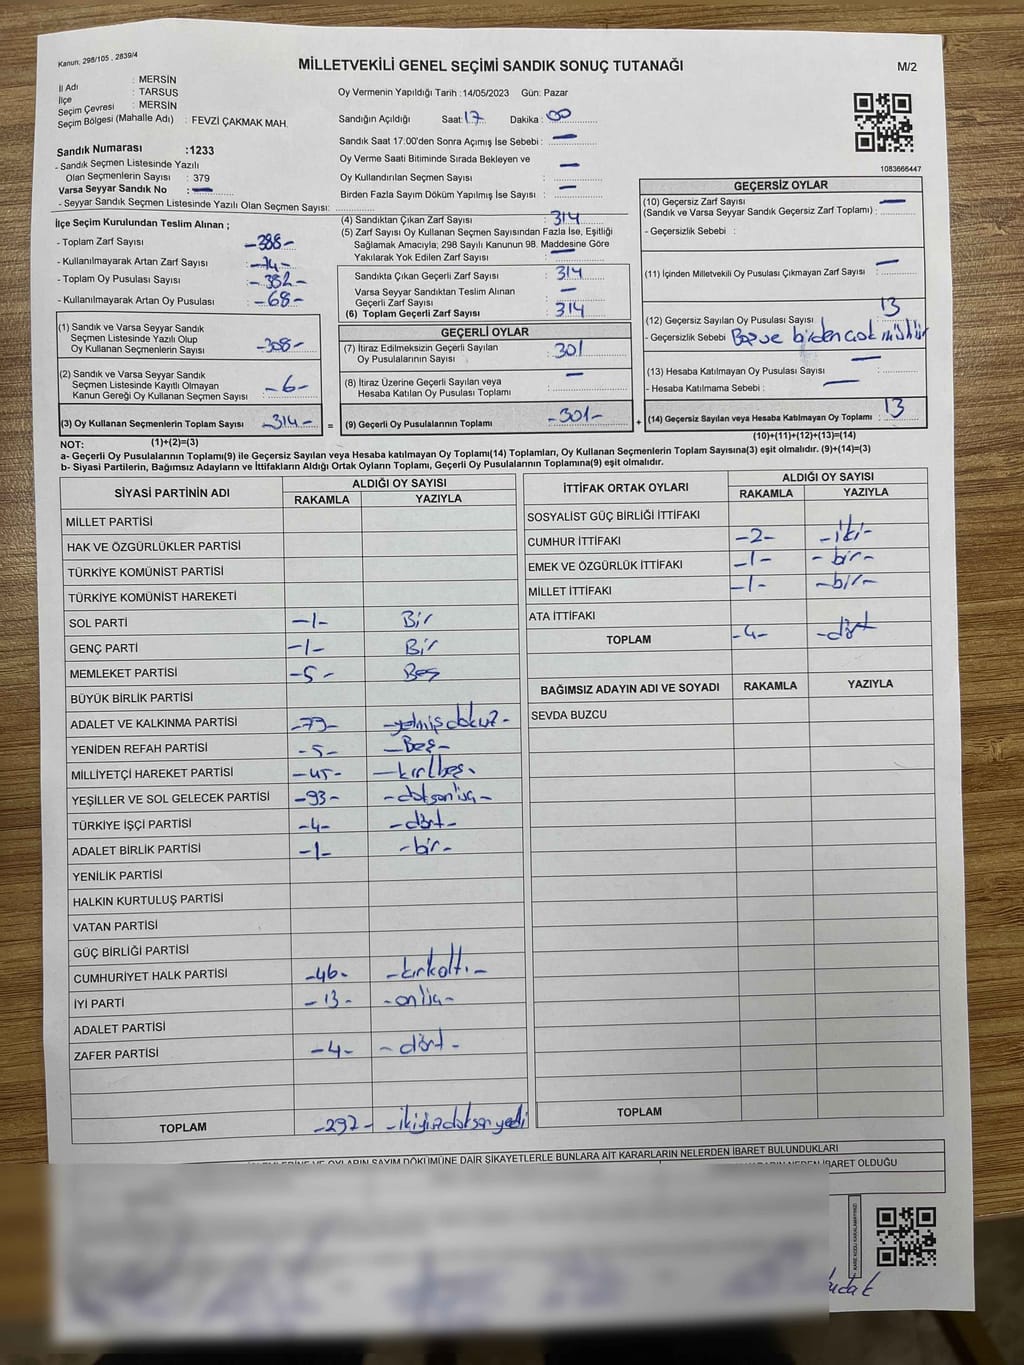 Kanun; 298/105 , 2839/4
MİLLETVEKİLİ GENEL SEÇİMİ SANDIK SONUÇ TUTANAĞI
M/2
İl Adı : MERSİN
İlçe : TARSUS
Seçim Çevresi : MERSİN
Seçim Bölgesi (Mahalle Adı) : FEVZİ ÇAKMAK MAH.
Oy Vermenin Yapıldığı Tarih :14/05/2023 Gün: Pazar
Sandığın Açıldığı Saat: 17 Dakika : 00
Sandık Saat 17:00'den Sonra Açımış İse Sebebi : —
Oy Verme Saati Bitiminde Sırada Bekleyen ve
Oy Kullandırılan Seçmen Sayısı : —
Birden Fazla Sayım Döküm Yapılmış İse Sayısı : —
1083666447
Sandık Numarası :1233
- Sandık Seçmen Listesinde Yazılı
Olan Seçmenlerin Sayısı : 379
Varsa Seyyar Sandık No : —
- Seyyar Sandık Seçmen Listesinde Yazılı Olan Seçmen Sayısı:
İlçe Seçim Kurulundan Teslim Alınan ;
- Toplam Zarf Sayısı -388-
- Kullanılmayarak Artan Zarf Sayısı -74-
- Toplam Oy Pusulası Sayısı -382-
- Kullanılmayarak Artan Oy Pusulası : -68-
(1) Sandık ve Varsa Seyyar Sandık
Seçmen Listesinde Yazılı Olup
Oy Kullanan Seçmenlerin Sayısı -308-
(2) Sandık ve Varsa Seyyar Sandık
Seçmen Listesinde Kayıtlı Olmayan
Kanun Gereği Oy Kullanan Seçmen Sayısı : -6-
(3) Oy Kullanan Seçmenlerin Toplam Sayısı -314- =
(1)+(2)=(3)
(4) Sandıktan Çıkan Zarf Sayısı : 314
(5) Zarf Sayısı Oy Kullanan Seçmen Sayısından Fazla İse, Eşitliği
Sağlamak Amacıyla; 298 Sayılı Kanunun 98. Maddesine Göre
Yakılarak Yok Edilen Zarf Sayısı : —
Sandıkta Çıkan Geçerli Zarf Sayısı : 314
Varsa Seyyar Sandıktan Teslim Alınan
Geçerli Zarf Sayısı : —
(6) Toplam Geçerli Zarf Sayısı : 314
GEÇERLİ OYLAR
(7) İtiraz Edilmeksizin Geçerli Sayılan
Oy Pusulalarının Sayısı : 301
(8) İtiraz Üzerine Geçerli Sayılan veya
Hesaba Katılan Oy Pusulası Toplamı : —
(9) Geçerli Oy Pusulalarının Toplamı -301- +
GEÇERSİZ OYLAR
(10) Geçersiz Zarf Sayısı
(Sandık ve Varsa Seyyar Sandık Geçersiz Zarf Toplamı) : —
- Geçersizlik Sebebi :
(11) İçinden Milletvekili Oy Pusulası Çıkmayan Zarf Sayısı : —
(12) Geçersiz Sayılan Oy Pusulası Sayısı : 13
- Geçersizlik Sebebi Boş ve birden çok mühür
(13) Hesaba Katılmayan Oy Pusulası Sayısı : —
- Hesaba Katılmama Sebebi : —
(14) Geçersiz Sayılan veya Hesaba Katılmayan Oy Toplamı : 13
(10)+(11)+(12)+(13)=(14)
NOT:
a- Geçerli Oy Pusulalarının Toplamı(9) ile Geçersiz Sayılan veya Hesaba katılmayan Oy Toplamı(14) Toplamları, Oy Kullanan Seçmenlerin Toplam Sayısına(3) eşit olmalıdır. (9)+(14)=(3)
b- Siyasi Partilerin, Bağımsız Adayların ve İttifakların Aldığı Ortak Oyların Toplamı, Geçerli Oy Pusulalarının Toplamına(9) eşit olmalıdır.
SİYASİ PARTİNİN ADI ALDIĞI OY SAYISI
RAKAMLA YAZIYLA
MİLLET PARTİSİ
HAK VE ÖZGÜRLÜKLER PARTİSİ
TÜRKİYE KOMÜNİST PARTİSİ
TÜRKİYE KOMÜNİST HAREKETİ
SOL PARTİ -1- Bir
GENÇ PARTİ -1- Bir
MEMLEKET PARTİSİ -5- Beş
BÜYÜK BİRLİK PARTİSİ
ADALET VE KALKINMA PARTİSİ -79- -yetmiş dokuz-
YENİDEN REFAH PARTİSİ -5- -Beş-
MİLLİYETÇİ HAREKET PARTİSİ -45- -kırkbeş-
YEŞİLLER VE SOL GELECEK PARTİSİ -93- -doksan üç-
TÜRKİYE İŞÇİ PARTİSİ -4- -dört-
ADALET BİRLİK PARTİSİ -1- -bir-
YENİLİK PARTİSİ
HALKIN KURTULUŞ PARTİSİ
VATAN PARTİSİ
GÜÇ BİRLİĞİ PARTİSİ
CUMHURİYET HALK PARTİSİ -46- -kırkaltı-
İYİ PARTİ -13- -onüç-
ADALET PARTİSİ
ZAFER PARTİSİ -4- -dört-
TOPLAM -297- -ikiyüzdoksanyedi
İTTİFAK ORTAK OYLARI ALDIĞI OY SAYISI
RAKAMLA YAZIYLA
SOSYALİST GÜÇ BİRLİĞİ İTTİFAKI
CUMHUR İTTİFAKI -2- -iki-
EMEK VE ÖZGÜRLÜK İTTİFAKI -1- -bir-
MİLLET İTTİFAKI -1- -bir-
ATA İTTİFAKI
TOPLAM -4- -dört
BAĞIMSIZ ADAYIN ADI VE SOYADI RAKAMLA YAZIYLA
SEVDA BUZCU
TOPLAM
OYLARIN SAYIM DÖKÜMÜNE DAİR ŞİKAYETLERLE BUNLARA AİT KARARLARIN NELERDEN İBARET BULUNDUKLARI
NEDEN İBARET OLDUĞU